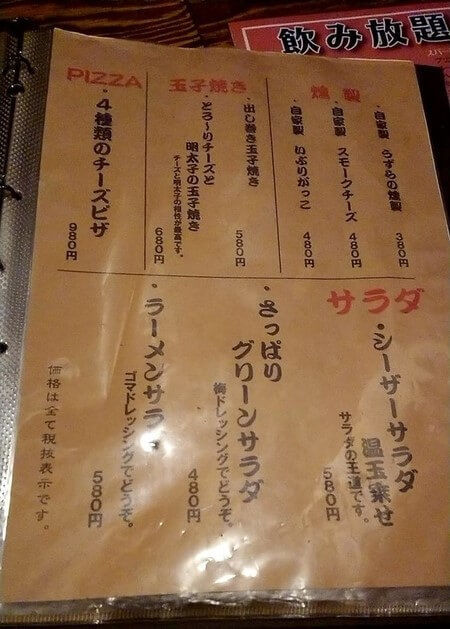 飲み放題
燻製
・自家製 うずらの燻製 380円
・自家製 スモークチーズ 480円
・自家製 いぶりがっこ 480円
玉子焼き
・出し巻き玉子焼き 580円
・とろ〜りチーズと
明太子の玉子焼き
チーズと明太子の相性が最高です。
680円
PIZZA
・4種類のチーズピザ 980円
サラダ
・シーザーサラダ
温玉乗せ
サラダの王道です。
580円
・さっぱり
グリーンサラダ
梅ドレッシングでどうぞ。
480円
・ラーメンサラダ
ゴマドレッシングでどうぞ。
580円
価格は全て税抜表示です。